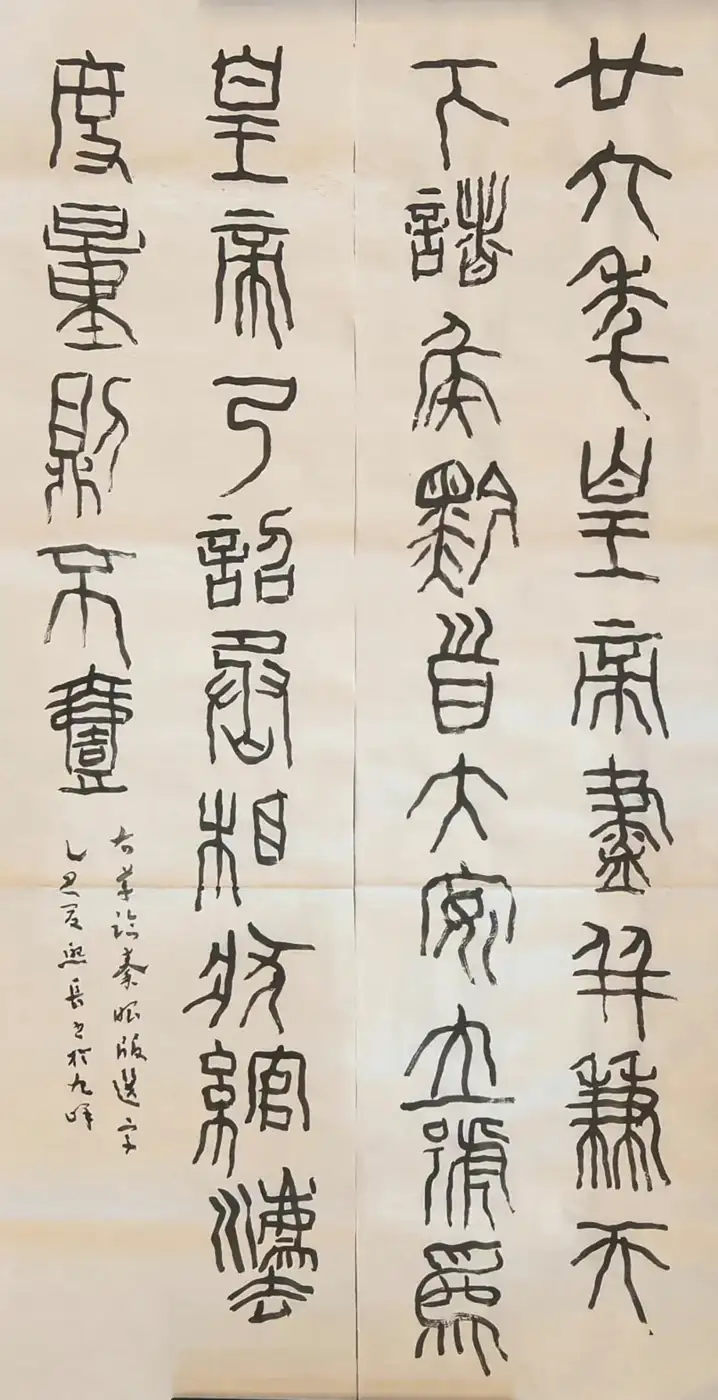 廿六年皇帝盡并兼天
下諸侯黔首大安立號爲
皇帝乃詔丞相狀綰灋
度量則不壹
右臨秦詔版選字
長書於九